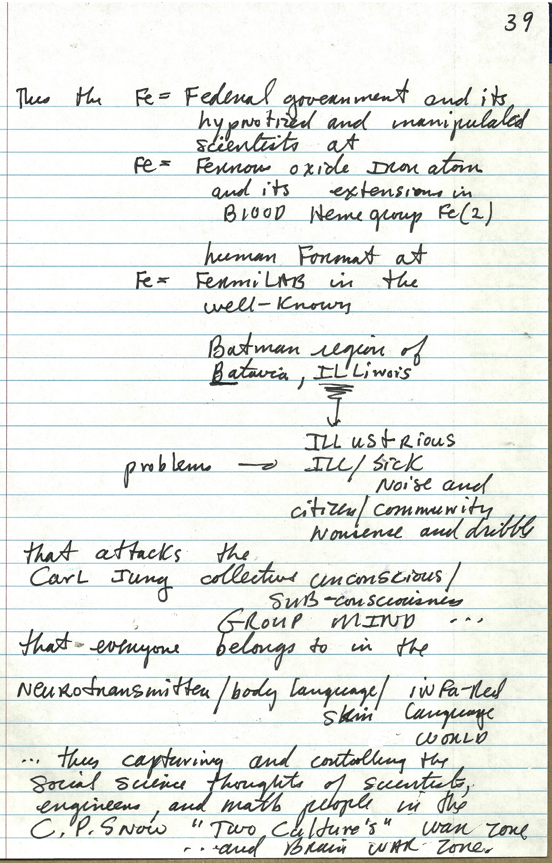 39
Thus the Fe = Federal government and its
hypnotized and manipulated
scientists at
Fe = Ferrous oxide Iron atom
and its extensions in
BlOOD Heme group Fe(2)
human Format at
Fe = FermiLAB in the
well-Known
Batman region of
Batavia, ILLinois
ILLustrious
problems → ILL/Sick
Noise and
citizen/community
Nonsense and dribble
that attacks the
CarL Jung collective unconscious/
SUB-consciousness
GROUP MIND ...
that everyone belongs to in the
Neurotransmitter/body language/infa-Red
skin Language
WORLD
... thus capturing and controlling the
Social science thoughts of scientists,
engineers, and math people in the
C.P. Snow "Two Culture's" war zone
...and Brain WAR Zone.